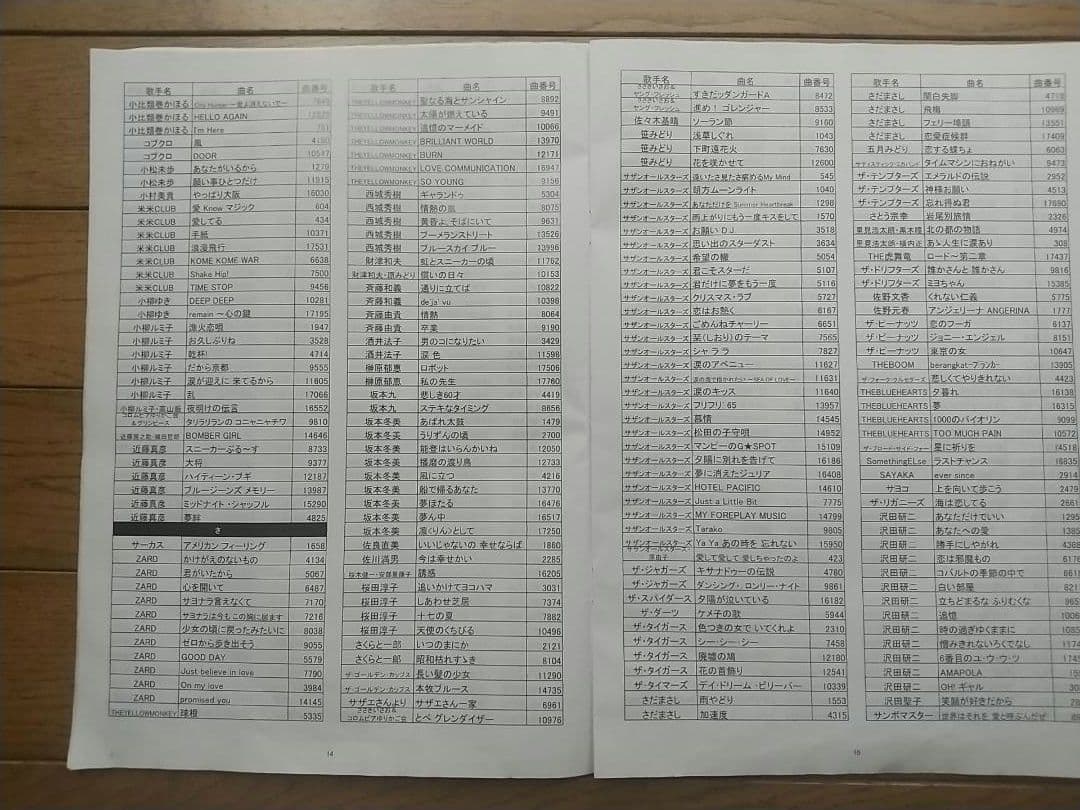 歌手名 曲名 曲番号
小比類巻かほる
小比類巻かほる HELLO AGAIN
小比類巻かほる I'm Here
コブクロ 風
コブクロ DOOR 10547
小松未歩 あなたがいるから 1279
小松未歩 願い事ひとつだけ 11915
小村美貴 やっぱり大阪 16030
米米CLUB 愛 Know マジック 604
米米CLUB 愛してる 434
米米CLUB 手紙 10371
米米CLUB 浪漫飛行 17531
米米CLUB KOME KOME WAR 6638
米米CLUB Shake Hip! 7500
米米CLUB TIME STOP 9456
小柳ゆき DEEP DEEP 10281
小柳ゆき remain ～心の鍵 17195
小柳ルミ子 漁火恋唄 1947
小柳ルミ子 お久しぶりね 3528
小柳ルミ子 乾杯! 4714
小柳ルミ子 だから京都 9555
小柳ルミ子 涙が迎えに 来てるから 11605
小柳ルミ子 乱 17066
夜明けの伝言 16552
タリラリランの コニャニャチワ 9810
BOMBER GIRL 14646
近藤真彦 スニーカーぶる～す 8733
近藤真彦 大将 9377
近藤真彦 ハイティーン・ブギ 12187
近藤真彦 ブルージーンズ メモリー 13987
近藤真彦 ミッドナイト・シャッフル 15290
近藤真彦 夢絆 4825
さ
サーカス アメリカン フィーリング 1658
ZARD かけがえのないもの 4134
ZARD 君がいたから 5067
ZARD 心を開いて 6487
ZARD サヨナラ言えなくて 7170
ZARD サヨナラは今もこの胸に居ます 7216
ZARD 少女の頃に戻ったみたいに 8038
ZARD ゼロから歩き出そう 9055
ZARD GOOD DAY 5579
ZARD Just believe in love 7790
ZARD On my love 3984
ZARD promised you 14145
THEYELLOWMONKEY 球根 5335
14
歌手名 曲名 曲番号
THEYELLOWMONKEY 聖なる海とサンシャイン 8892
THEYELLOWMONKEY 太陽が燃えている 9491
THEYELLOWMONKEY 追憶のマーメイド 10066
THEYELLOWMONKEY BRILLIANT WORLD 13970
THEYELLOWMONKEY BURN 12171
THEYELLOWMONKEY LOVE COMMUNICATION 16947
THEYELLOWMONKEY SO YOUNG 9156
西城秀樹 ギャランドゥ 5304
西城秀樹 情熱の嵐 8075
西城秀樹 黄昏よ、そばにいて 9631
西城秀樹 ブーメランストリート 13526
西城秀樹 ブルースカイ ブルー 13996
財津和夫 虹とスニーカーの頃 11762
財津和夫・原みどり 償いの日々 10153
斉藤和義 通りに立てば 10822
斉藤和義 deja' vu 10396
斉藤由貴 情熱 8064
斉藤由貴 卒業 9190
酒井法子 男のコになりたい 3429
酒井法子 涙色 11598
榊原郁恵 ロボット 17506
榊原郁恵 私の先生 17760
坂本九 悲しき60才 4419
坂本九 ステキなタイミング 8656
坂本冬美 あばれ太鼓 1479
坂本冬美 うりずんの頃 2700
坂本冬美 能登はいらんかいね 12050
坂本冬美 播磨の渡り鳥 12733
坂本冬美 風に立つ 4216
坂本冬美 船で帰るあなた 13770
坂本冬美 夢ほたる 16476
坂本冬美 夢ん中 16517
坂本冬美 凛(りん)として 17250
佐良直美 いいじゃないの 幸せならば 1860
佐川満男 今は幸せかい 2285
誘惑 16205
桜田淳子 追いかけてヨコハマ 3031
桜田淳子 しあわせ芝居 7374
桜田淳子 十七の夏 7882
桜田淳子 天使のくちびる 10496
さくらと一郎 いつのまにか 2121
さくらと一郎 昭和枯れすゝき 8104
ザ・ゴールデン・カップス 長い髪の少女 11290
ザ・ゴールデン・カップス 本牧ブルース 14735
サザエさんより サザエさん一家 6961
ささきいさお＆
コロムビアゆりかご会 とべ グレンダイザー 10976
歌手名 曲名 曲番号
ささきいさお＆
ヤング・フレッシュ すきだッダンガードA 8472
ささきいさお＆
ヤング・フレッシュ 進め! ゴレンジャー 8533
佐々木基晴 ソーラン節 9160
笹みどり 浅草しぐれ 1043
笹みどり 下町遠花火 7630
笹みどり 花を咲かせて 12600
サザンオールスターズ 遠いたさ見たさ病めるMy Mind 545
サザンオールスターズ 朝方ムーンライト 1040
サザンオールスターズ あなただけを Summer Heartbreak 1298
サザンオールスターズ 雨上がりにもう一度キスをして 1570
サザンオールスターズ お願いＤＪ 3518
サザンオールスターズ 思い出のスターダスト 3634
サザンオールスターズ 希望の轍 5054
サザンオールスターズ 君こそスターだ 5107
サザンオールスターズ 君だけに夢をもう一度 5116
サザンオールスターズ クリスマス・ラブ 5727
サザンオールスターズ 恋はお熱く 6167
サザンオールスターズ ごめんねチャーリー 6651
サザンオールスターズ 栞(しおり)のテーマ 7565
サザンオールスターズ シャ ラ ラ 7827
サザンオールスターズ 涙のアベニュー 11627
サザンオールスターズ 涙の海で抱かれたい ～SEA OF LOVE～ 11631
サザンオールスターズ 涙のキッス 11640
サザンオールスターズ フリフリ'65 13957
サザンオールスターズ 慕情 14545
サザンオールスターズ 松田の子守唄 14952
サザンオールスターズ マンピーのG★SPOT 15109
サザンオールスターズ 夕陽に別れを告げて 16186
サザンオールスターズ 夢に消えたジュリア 16408
サザンオールスターズ HOTEL PACIFIC 14610
サザンオールスターズ Just a Little Bit 7775
サザンオールスターズ MY FOREPLAY MUSIC 14799
サザンオールスターズ Tarako 9805
サザンオールスターズ Ya Ya あの時を 忘れない 15950
サザンオールスターズ
原由子 愛して愛して 愛しちゃったのよ 423
ザ・ジャガーズ キサナドゥーの伝説 4780
ザ・ジャガーズ ダンシング・ロンリー・ナイト 9861
ザ・スパイダース 夕陽が泣いている 16182
ザ・ダーツ ケメ子の歌 5944
ザ・タイガース 色つきの女で いてくれよ 2310
ザ・タイガース シー・シー・シー 7458
ザ・タイガース 廃墟の鳩 12180
ザ・タイガース 花の首飾り 12541
ザ・タイマーズ デイ・ドリーム・ビリーバー 10339
さだまさし 雨やどり 1553
さだまさし 加速度 4315
15
歌手名 曲名 曲番号
さだまさし 関白失脚
さだまさし 飛梅 10969
さだまさし フェリー埠頭 13551
さだまさし 恋愛症候群 17409
五月みどり 恋する蝶ちょ 6063
サディスティック・ミカバンド タイムマシンにおねがい 9473
ザ・テンプターズ エメラルドの伝説 2952
ザ・テンプターズ 神様お願い 4513
ザ・テンプターズ 忘れ得ぬ君 17690
さとう宗幸 岩尾別旅情 2326
里見浩太朗・黒木瞳 北の都の物語 4974
里見浩太朗・横内正 あゝ人生に涙あり 308
THE虎舞竜 ロード～第二章 17437
ザ・ドリフターズ 誰かさんと 誰かさん 9816
ザ・ドリフターズ ミヨちゃん 15385
佐野文香 くれない仁義 5775
佐野元春 アンジェリーナ ANGERINA 1777
ザ・ピーナッツ 恋のフーガ 6137
ザ・ピーナッツ ジョニー・エンジェル 8151
ザ・ピーナッツ 東京の女 10647
THEBOOM berangkat-ブランカー 13905
ザ・フォーク・クルセダーズ 悲しくてやりきれない 4423
THEBLUEHEARTS 夕暮れ 16138
THEBLUEHEARTS 夢 16315
THEBLUEHEARTS 1000のバイオリン 9099
THEBLUEHEARTS TOO MUCH PAIN 10572
ザ・ブロード・サイド・フォー 星に祈りを 14518
SomethingELse ラストチャンス 16835
SAYAKA ever since 2914
サヨコ 上を向いて歩こう 2479
ザ・リガニーズ 海は恋してる 2661
沢田研二 あなただけでいい 1295
沢田研二 あなたへの愛
沢田研二 勝手にしやがれ
沢田研二 恋は邪魔もの
沢田研二 コバルトの季節の中で
沢田研二 白い部屋
沢田研二 立ちどまるな ふりむくな
沢田研二 追憶
沢田研二 時の過ぎゆくままに
沢田研二 憎みきれないろくでなし
沢田研二 6番目のユ・ウ・ウ・ツ
沢田研二 AMAPOLA
沢田研二 OH! ギャル
沢田聖子 笑顔が好きだから
サンボマスター 世界はそれを 愛と呼ぶんだぜ